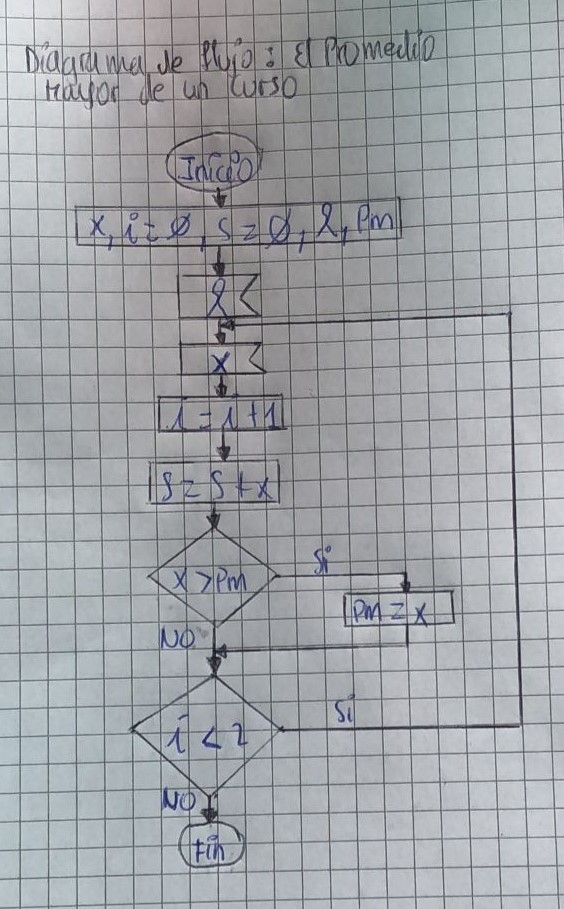 Diagrama de flujo: El Promedio
Mayor de un Curso
Inicio
x, i=0, s=0, l, Pm
l
x
i=i+1
s=s+x
x>Pm
Si
Pm=x
NO
i<l
Si
NO
Fin